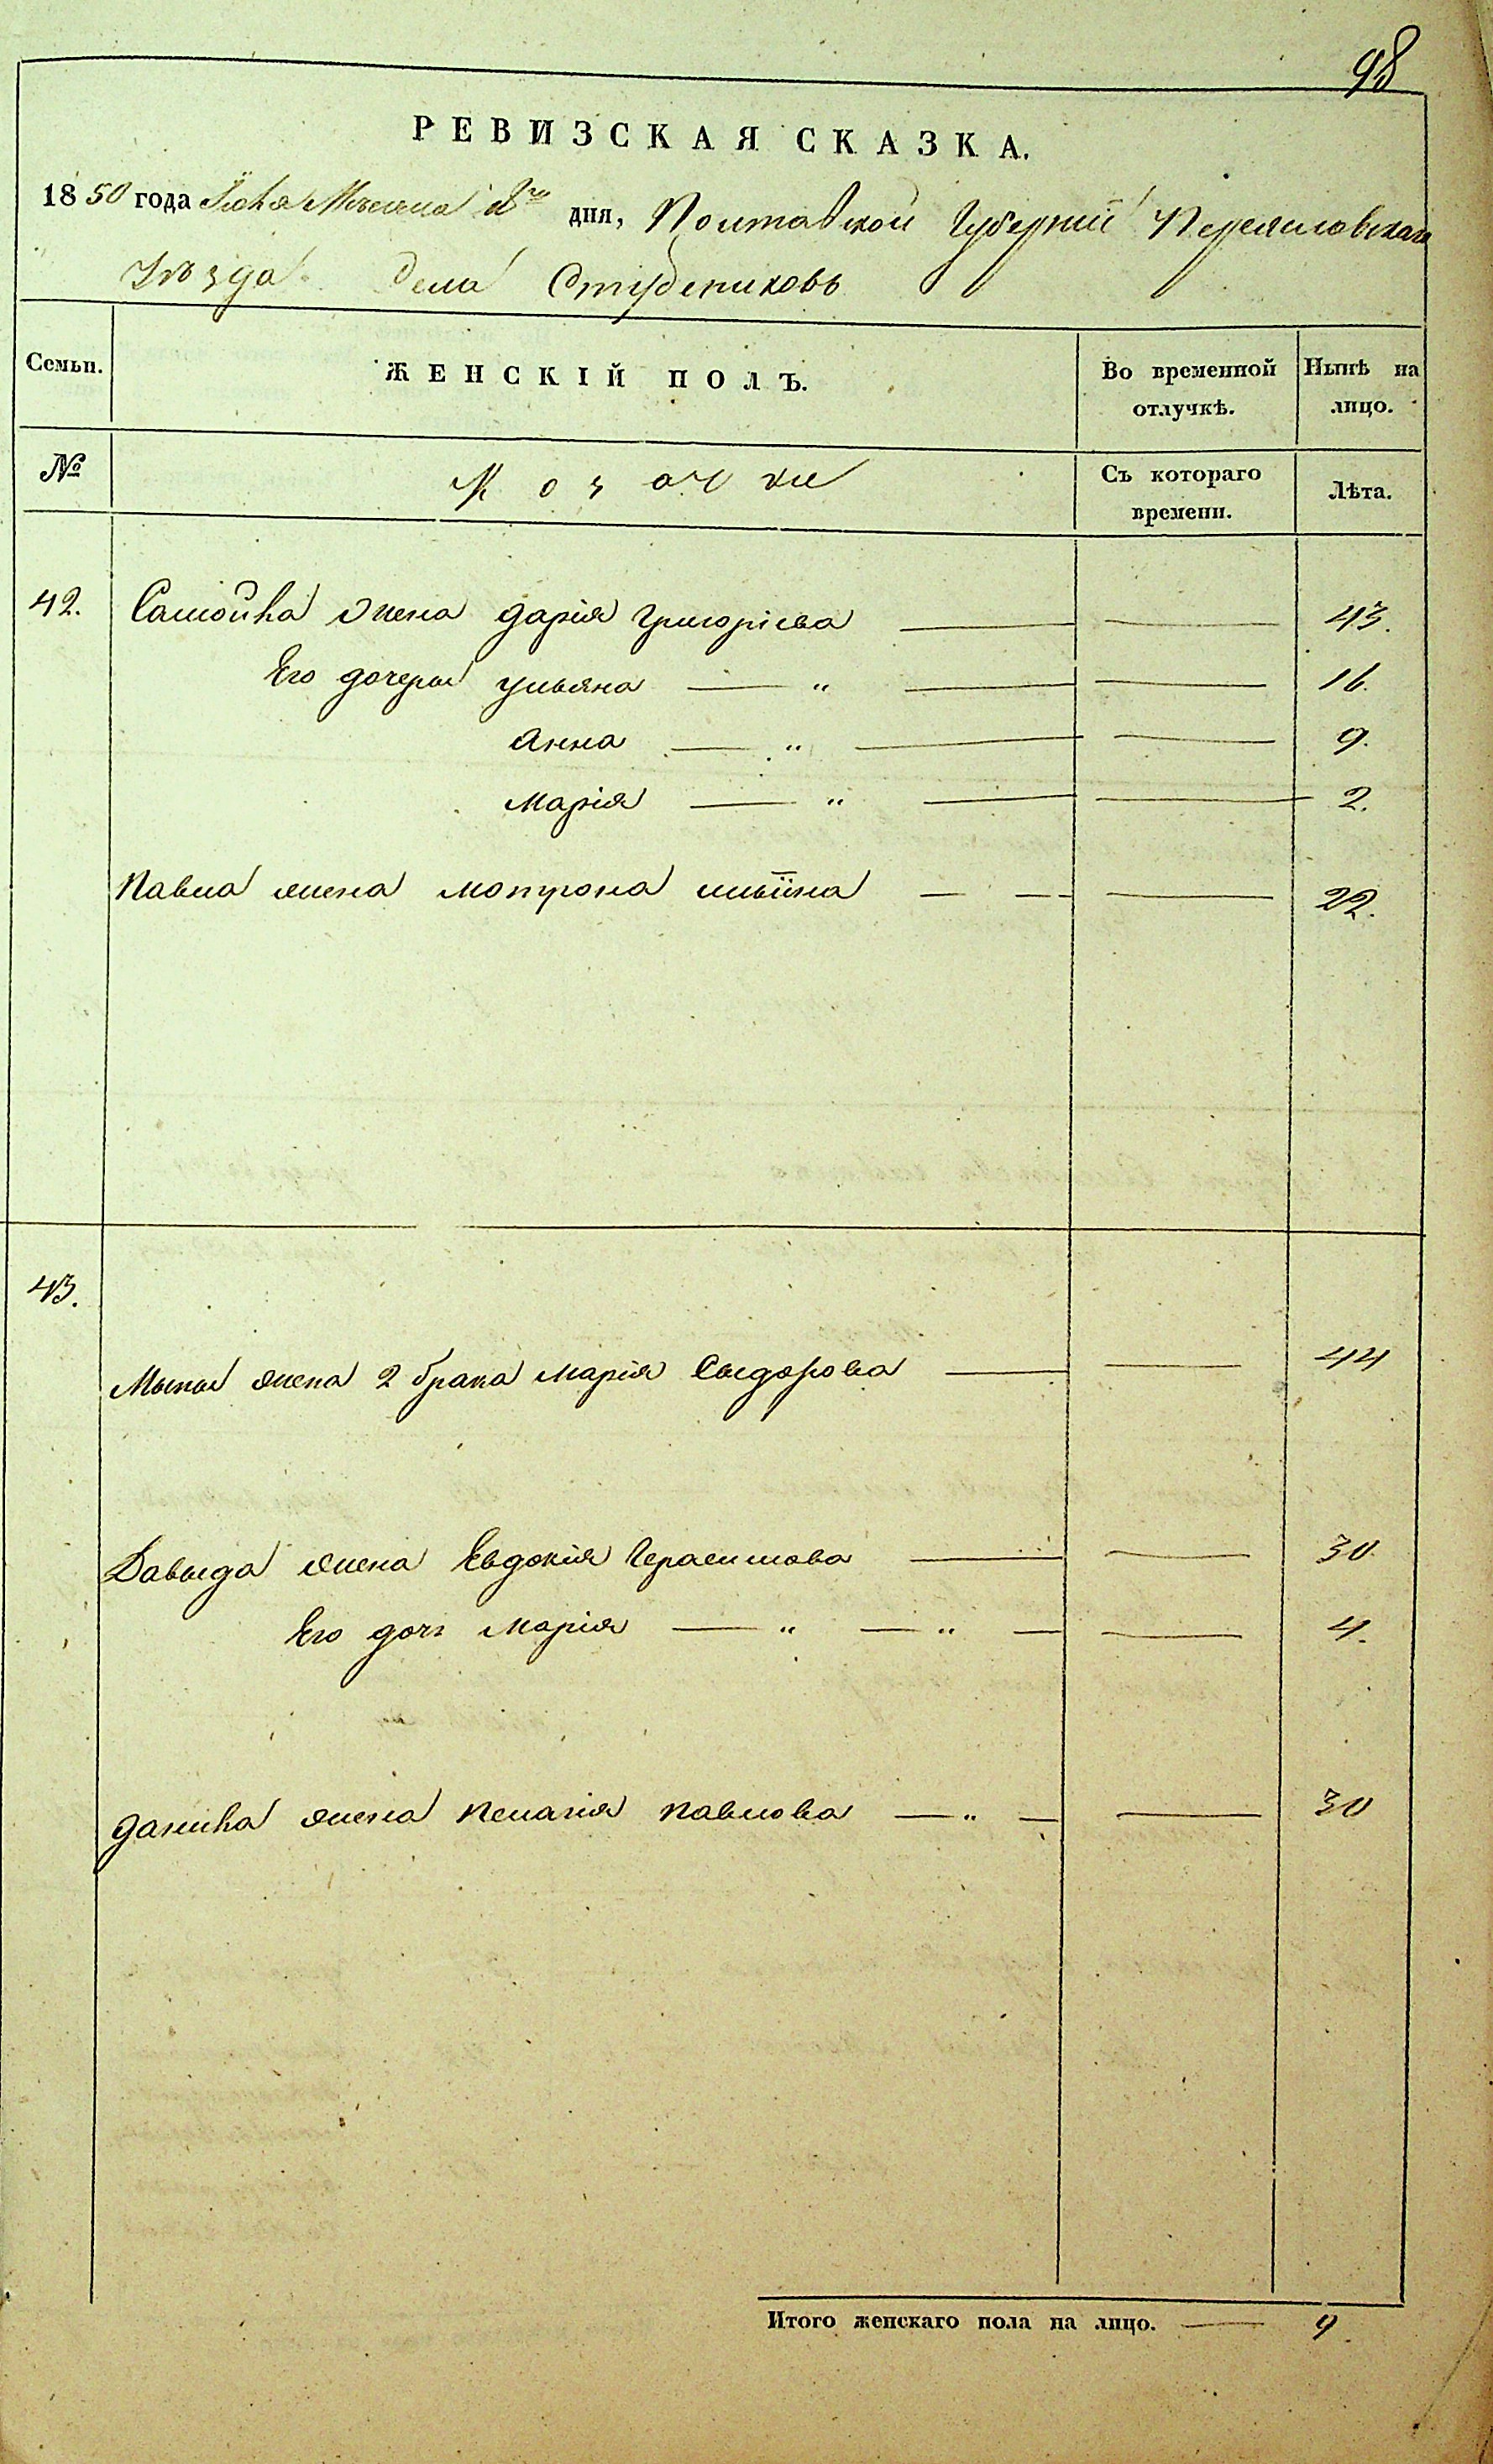 98
РЕВИЗСКАЯ СКАЗКА.
1850 года Июня Месяца дня, Полтавской Губернии Переяславскаго
Уезда Села Студениковъ
Семьи. ЖЕНСКІЙ ПОЛЪ. Во временной отлучкѣ. Нынѣ на лицо.
№ Козачки Съ котораго времени. Лѣта.
42. Самойла жена Дарія Григоріева 43.
Его дочеры Ульяна — „ 16.
Анна — „ 9.
Марія — „ 2.
Павла жена Мотрона Ильіина 22.
43.
Мыны жена 2 брака Марія Сыдорова 44
Давыда жена Евдокія Герасимова 30.
Его дочь Марія — „ — „ — 4.
Данила жена Пелагія Павлова — „ — 30
Итого женскаго пола на лицо. — 9